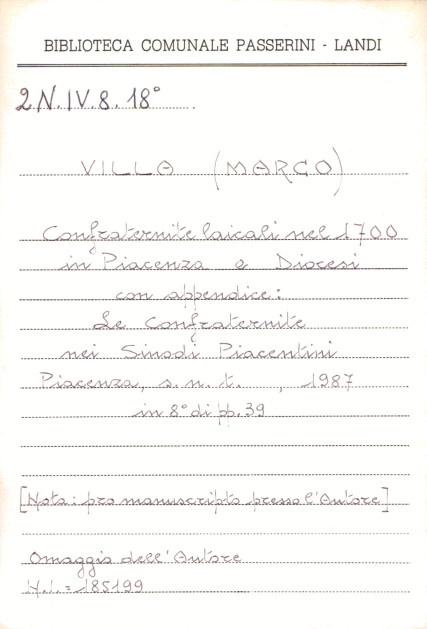 BIBLIOTECA COMUNALE PASSERINI - LANDI
2N.IV.8.18°
VILLA (MARCO)
Confraternite laicali nel 1700
in Piacenza e Diocesi
con appendice:
Le Confraternite
nei Sinodi Piacentini
Piacenza, s.n.t. , 1987
in 8° di pp. 39
[Nota: pro manuscripto presso l'Autore]
Omaggio dell'Autore
N.I. = 185199